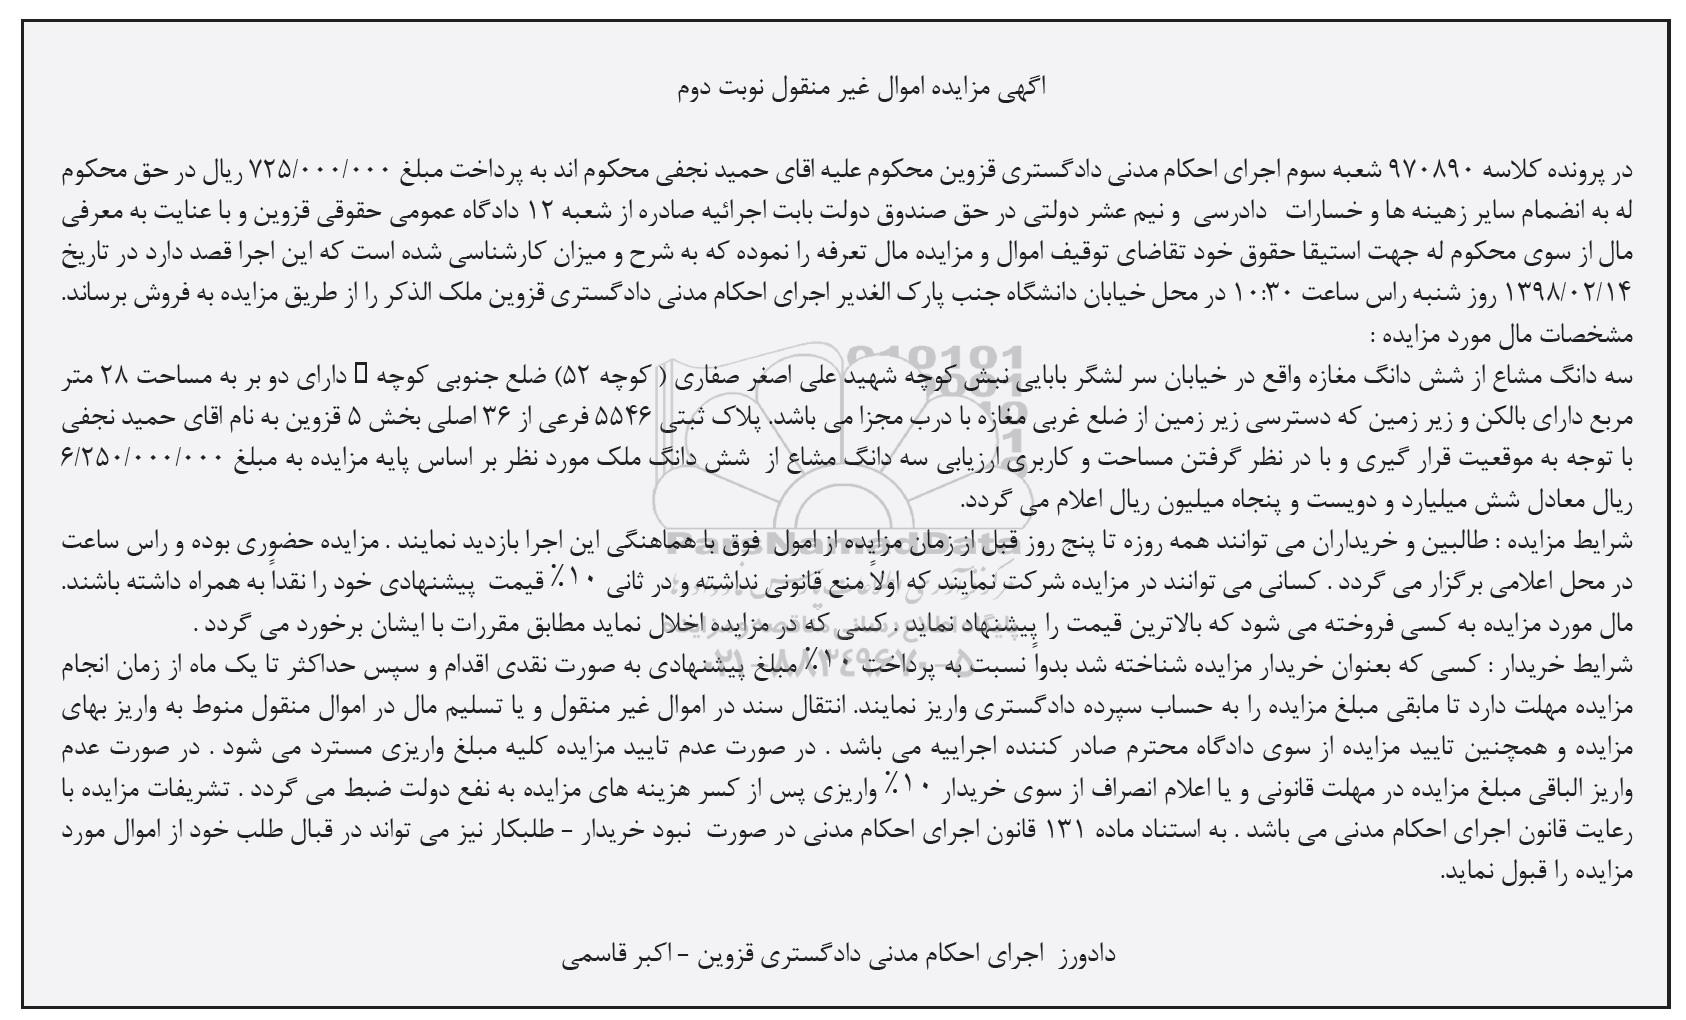 اگهی مزایده اموال غیر منقول نوبت دوم
در پرونده کلاسه ۹۷۰۸۹۰ شعبه سوم اجرای احکام مدنی دادگستری قزوین محکوم علیه اقای حمید نجفی محکوم اند به پرداخت مبلغ ۷۲۵/۰۰۰/۰۰۰ ریال در حق محکوم
له به انضمام سایر زهینه ها و خسارات دادرسی و نیم عشر دولتی در حق صندوق دولت بابت اجرائیه صادره از شعبه ۱۲ دادگاه عمومی حقوقی قزوین و با عنایت به معرفی
مال از سوی محکوم له جهت استیقا حقوق خود تقاضای توقیف اموال و مزایده مال تعرفه را نموده که به شرح و میزان کارشناسی شده است که این اجرا قصد دارد در تاریخ
۱۳۹۸/۰۲/۱۴ روز شنبه راس ساعت ۱۰:۳۰ در محل خیابان دانشگاه جنب پارک الغدیر اجرای احکام مدنی دادگستری قزوین ملک الذکر را از طریق مزایده به فروش برساند.
مشخصات مال مورد مزایده :
سه دانگ مشاع از شش دانگ مغازه واقع در خیابان سر لشگر بابایی نبش کوچه شهید علی اصغر صفاری ( کوچه ۵۲) ضلع جنوبی کوچه دارای دو بر به مساحت ۲۸ متر
مربع دارای بالکن و زیر زمین که دسترسی زیر زمین از ضلع غربی مغازه با درب مجزا می باشد. پلاک ثبتی ۵۵۴۶ فرعی از ۳۶ اصلی بخش ۵ قزوین به نام اقای حمید نجفی
با توجه به موقعیت قرار گیری و با در نظر گرفتن مساحت و کاربری ارزیابی سه دانگ مشاع از شش دانگ ملک مورد نظر بر اساس پایه مزایده به مبلغ ۶/۲۵۰/۰۰۰/۰۰۰
ریال معادل شش میلیارد و دویست و پنجاه میلیون ریال اعلام می گردد.
شرایط مزایده : طالبین و خریداران می توانند همه روزه تا پنج روز قبل از زمان مزایده از امول فوق با هماهنگی این اجرا بازدید نمایند . مزایده حضوری بوده و راس ساعت
در محل اعلامی برگزار می گردد . کسانی می توانند در مزایده شرکت نمایند که اولاً منع قانونی نداشته و در ثانی ۱۰٪ قیمت پیشنهادی خود را نقداً به همراه داشته باشند.
مال مورد مزایده به کسی فروخته می شود که بالاترین قیمت را پیشنهاد نماید . کسی که در مزایده اخلال نماید مطابق مقررات با ایشان برخورد می گردد .
شرایط خریدار : کسی که بعنوان خریدار مزایده شناخته شد بدواً نسبت به پرداخت ۱۰٪ مبلغ پیشنهادی به صورت نقدی اقدام و سپس حداکثر تا یک ماه از زمان انجام
مزایده مهلت دارد تا مابقی مبلغ مزایده را به حساب سپرده دادگستری واریز نمایند. انتقال سند در اموال غیر منقول و یا تسلیم مال در اموال منقول منوط به واریز بهای
مزایده و همچنین تایید مزایده از سوی دادگاه محترم صادر کننده اجراییه می باشد . در صورت عدم تایید مزایده کلیه مبلغ واریزی مسترد می شود . در صورت عدم
واریز الباقی مبلغ مزایده در مهلت قانونی و یا اعلام انصراف از سوی خریدار ۱۰٪ واریزی پس از کسر هزینه های مزایده به نفع دولت ضبط می گردد . تشریفات مزایده با
رعایت قانون اجرای احکام مدنی می باشد . به استناد ماده ۱۳۱ قانون اجرای احکام مدنی در صورت نبود خریدار – طلبکار نیز می تواند در قبال طلب خود از اموال مورد
مزایده را قبول نماید.
دادورز اجرای احکام مدنی دادگستری قزوین – اکبر قاسمی
ParsNamadData